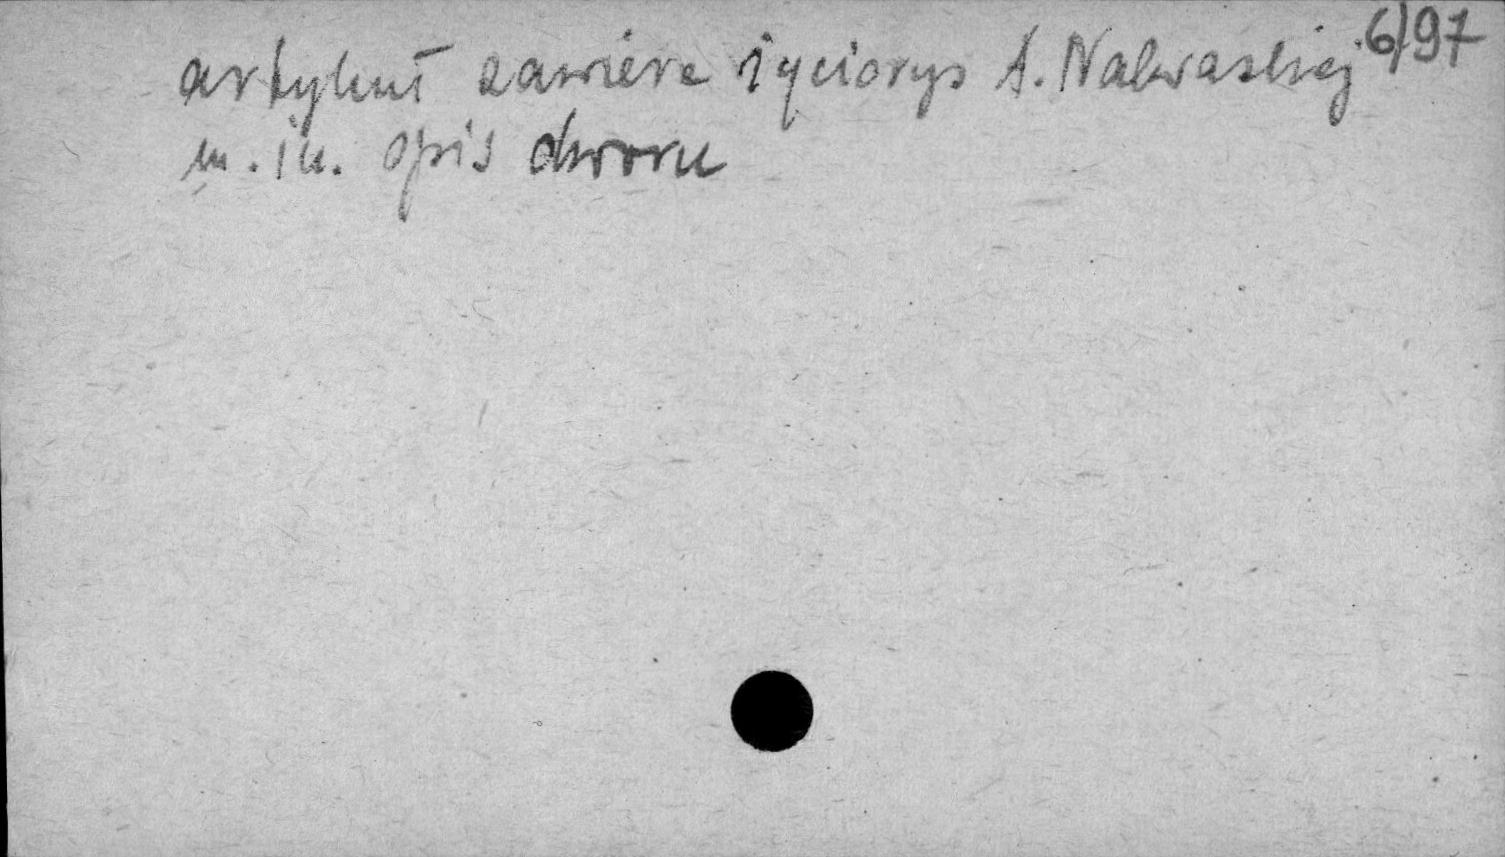 6/97
artykuł zawiera życiorys A. Nakwaskiej
m.in. opis dworu